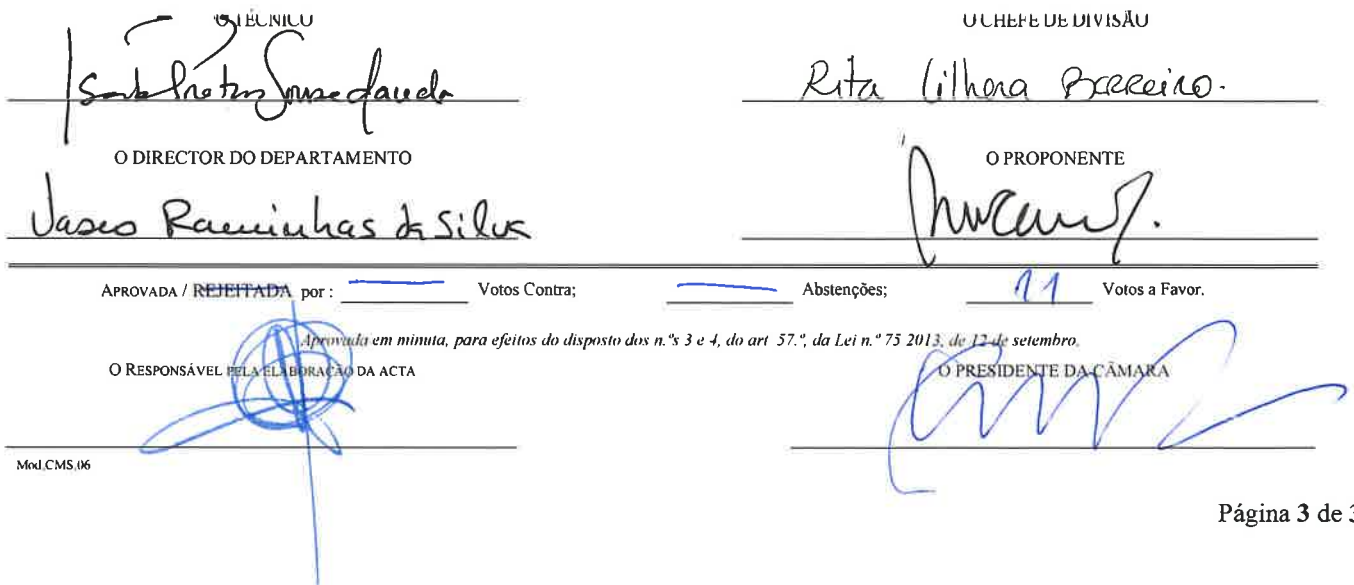 O TÉCNICO
O CHEFE DE DIVISÃO
Rita Cilhena Barreiro.
O DIRECTOR DO DEPARTAMENTO
O PROPONENTE
Vasco Raminhas da Silva
APROVADA / REJEITADA por : — Votos Contra; — Abstenções; 11 Votos a Favor.
Aprovada em minuta, para efeitos do disposto dos n.ºs 3 e 4, do art 57.º, da Lei n.º 75 2013, de 12 de setembro.
O RESPONSÁVEL PELA ELABORAÇÃO DA ACTA
O PRESIDENTE DA CÂMARA
Mod.CMS.06
Página 3 de 3